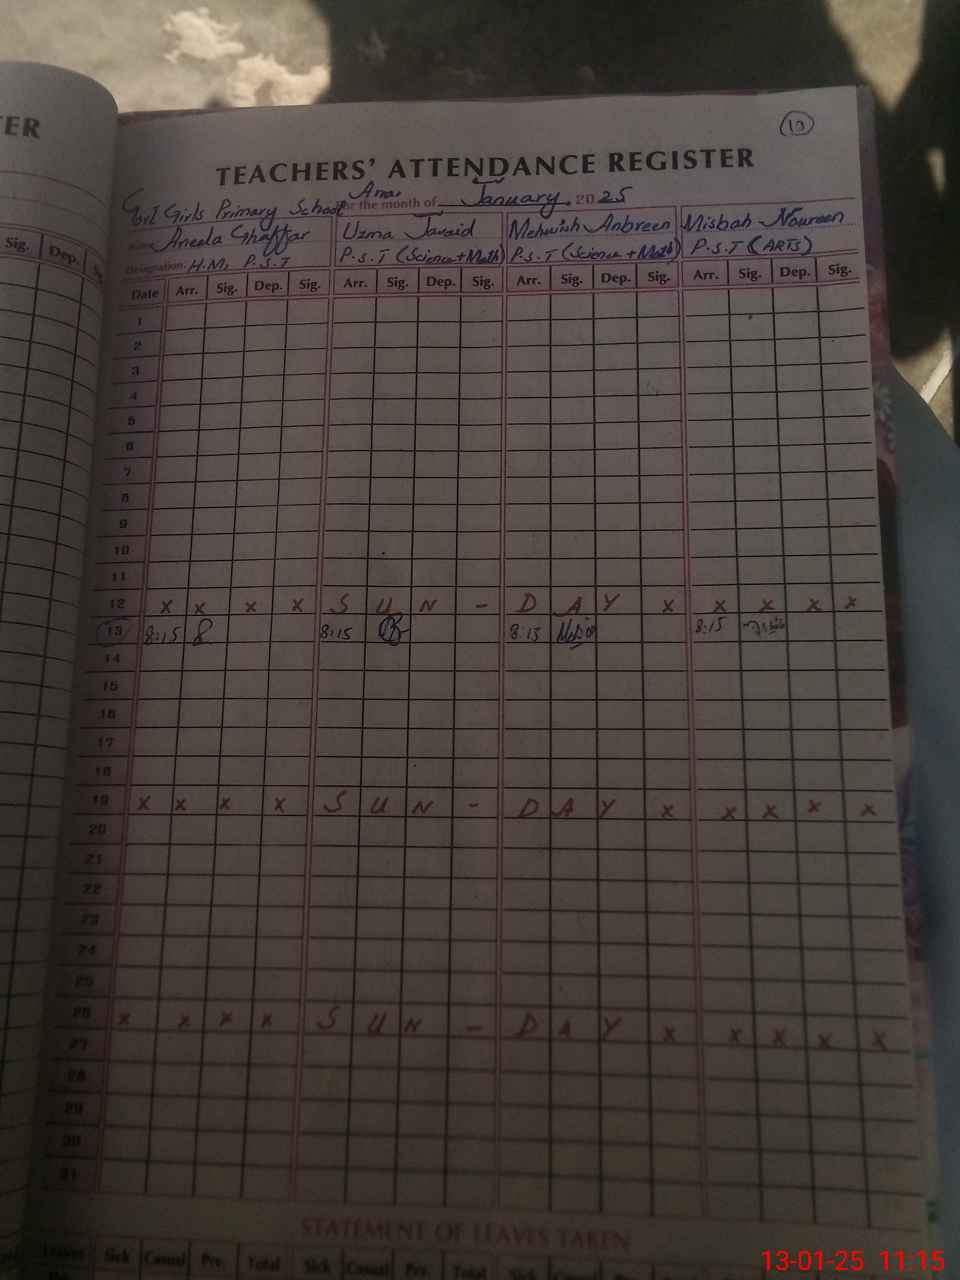 TER
10
TEACHERS' ATTENDANCE REGISTER
Govt Girls Primary School for the month of January. 2025
Aneela Ghaffar Uzma Javaid Mehwish Anbreen Misbah Noureen
Designation: H.M, P.S.T P.S.T (Science+Math) P.S.T (Science+Math) P.S.T (ARTS)
Sig. Dep.
Date Arr. Sig. Dep. Sig. Arr. Sig. Dep. Sig. Arr. Sig. Dep. Sig. Arr. Sig. Dep. Sig.
1
2
3
4
5
6
7
8
9
10
11
12 x x x x S U N - D A Y x x x x x
13 8:15 8:15 8:15 8:15
14
15
16
17
18
19 x x x x S U N - D A Y x x x x x
20
21
22
23
24
25
26 x x x x S U N - D A Y x x x x x
27
28
29
30
31
STATEMENT OF LEAVES TAKEN
Leaves Sick Casual Prv. Total Sick Casual Prv. Total Sick
13-01-25 11:15